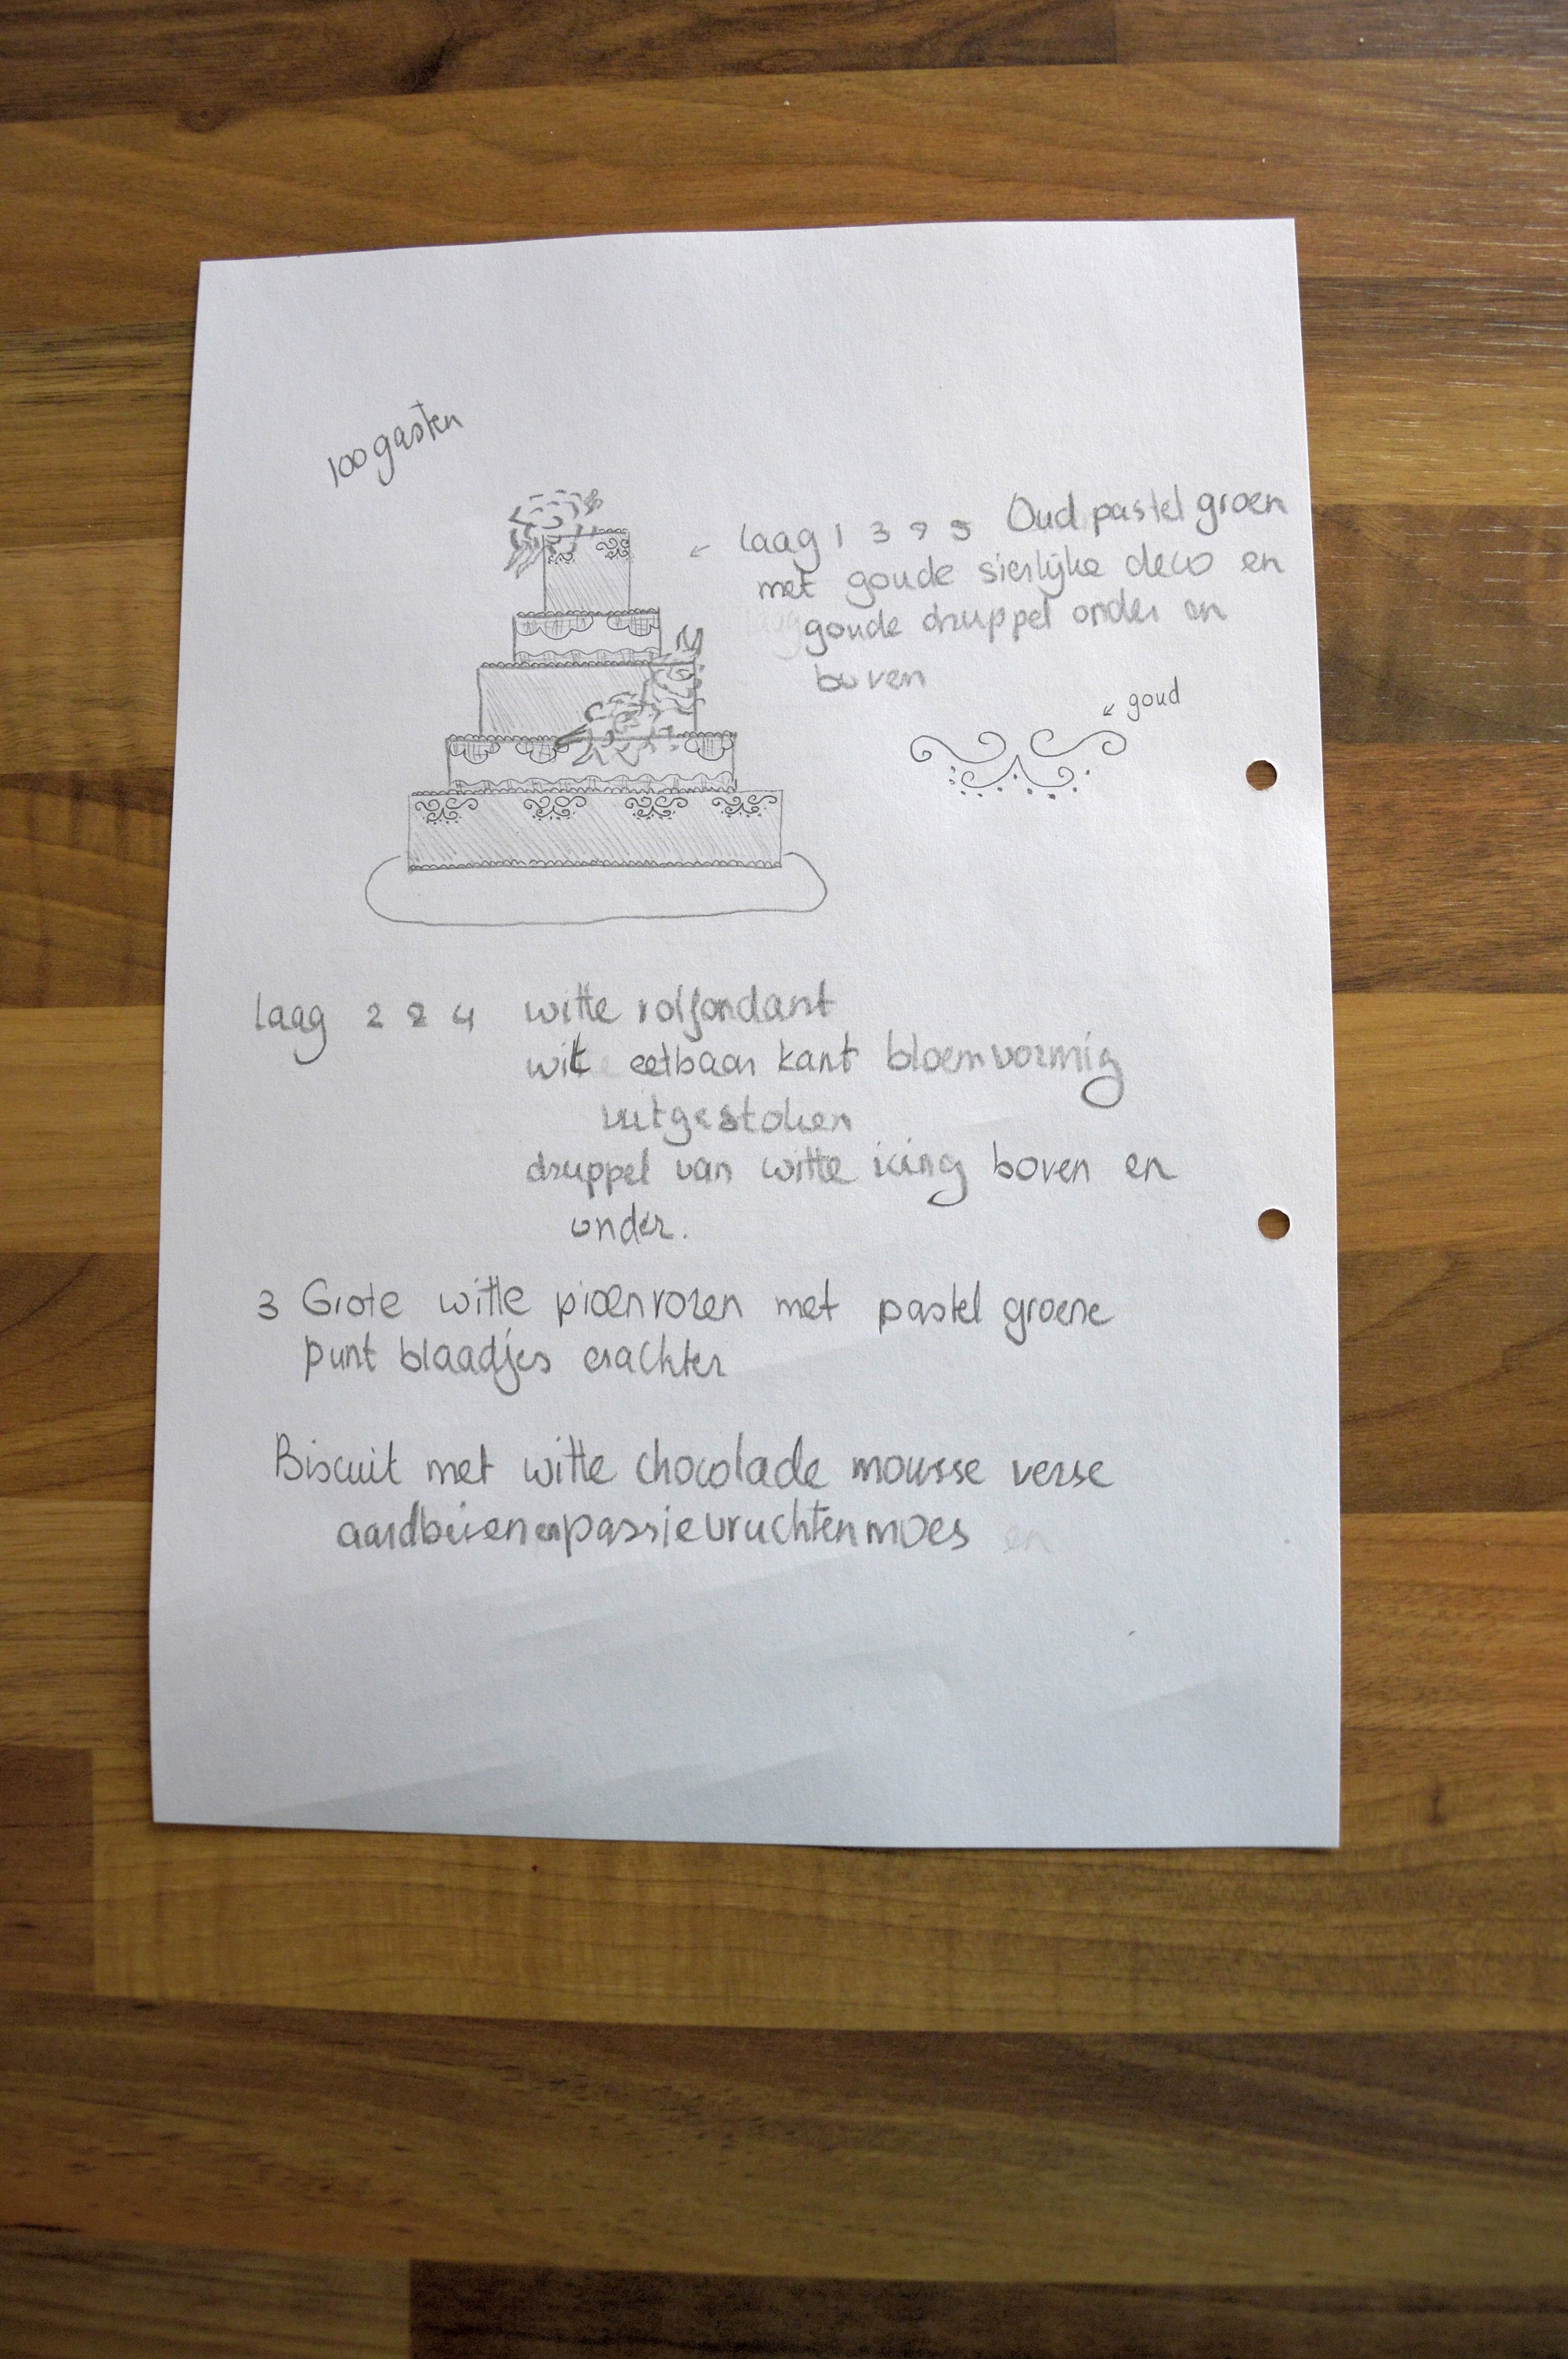 100 gasten
laag 1 3 & 5 Oud pastel groen
met goude sierlijke deco en
goude druppel onder en
boven
goud
laag 2 & 4 witte rolfondant
wit eetbaar kant bloemvormig
uitgestoken
druppel van witte icing boven en
onder.
3 Grote witte pioenrozen met pastel groene
punt blaadjes erachter
Biscuit met witte chocolade mousse verse
aardbeien en passievruchtenmoes